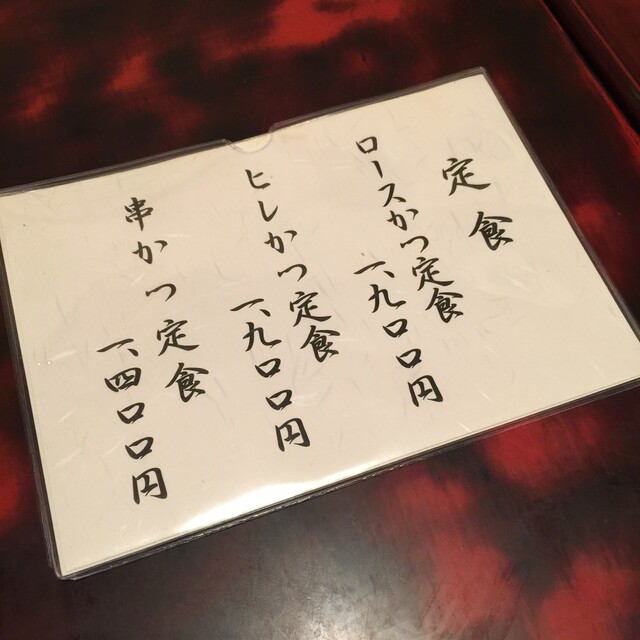 定食
ロースかつ定食
一、九〇〇円
ヒレかつ定食
一、九〇〇円
串かつ定食
一、四〇〇円